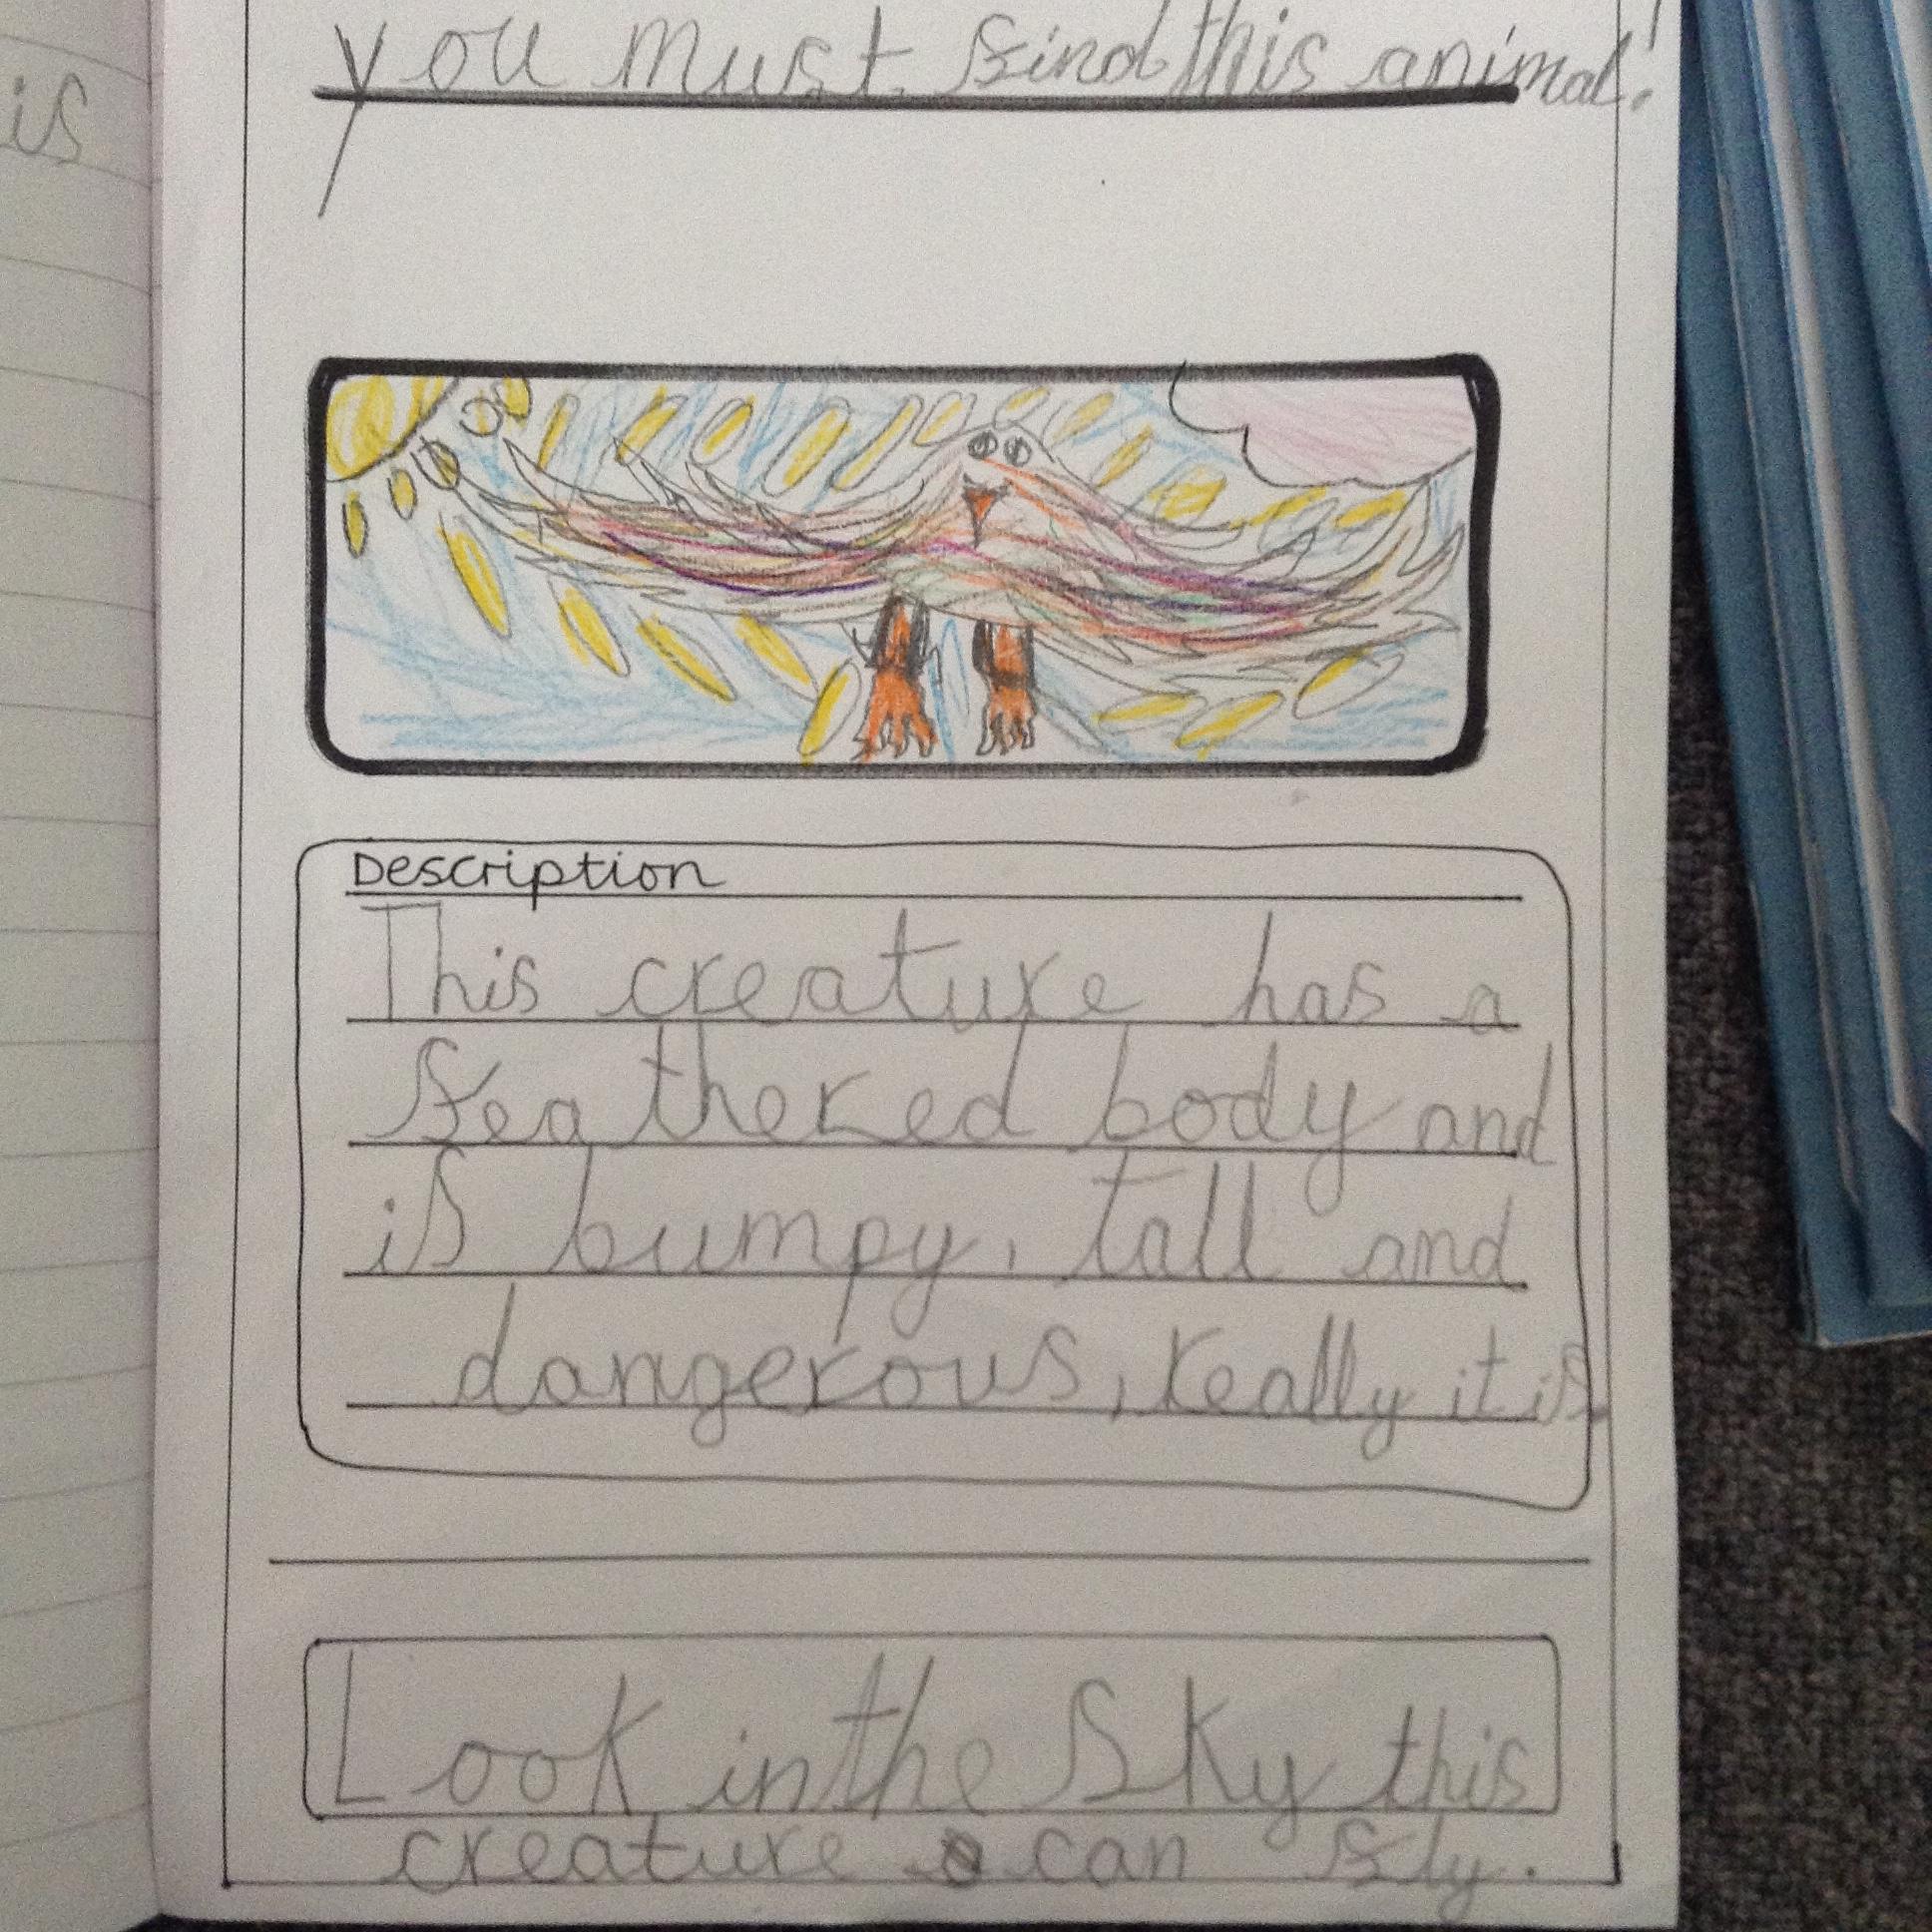 you must find this animal!
is
Description
This creature has a
feathered body and
is bumpy, tall and
dangerous, really it is
Look in the Sky this
creature can fly.